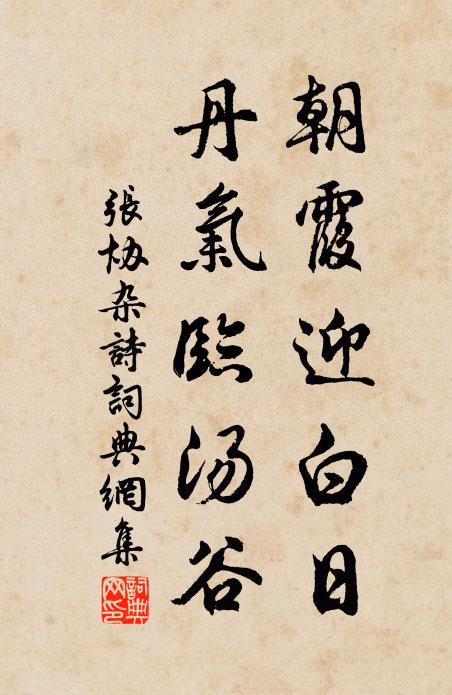 朝霞迎白日
丹氣臨汤谷
張協杂詩詞典網集
詞典网印